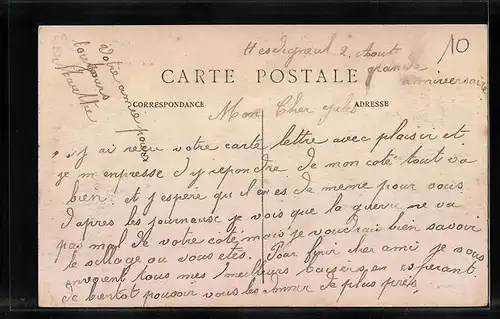 Hesdigneul 2 Aout
10
grande
anniversaire
CARTE POSTALE
CORRESPONDANCE
ADRESSE
Mon Cher Jules
j'y ai recu votre carte lettre avec plaisir et
je m enpresse d'y repondre de mon coté tout va
bien et j'espére qu il en es de meme pour vous
d'apres les journeuse je vois que la guerre ne va
pas mal de votre coté mais je voudrais bien savoir
le village ou vous etes. Pour finir cher ami je vous
envoient tous mes meilleurs baisers, en esperant
de bientot pouvoir vous les donner de plus prés.
votre amie pour
toujours